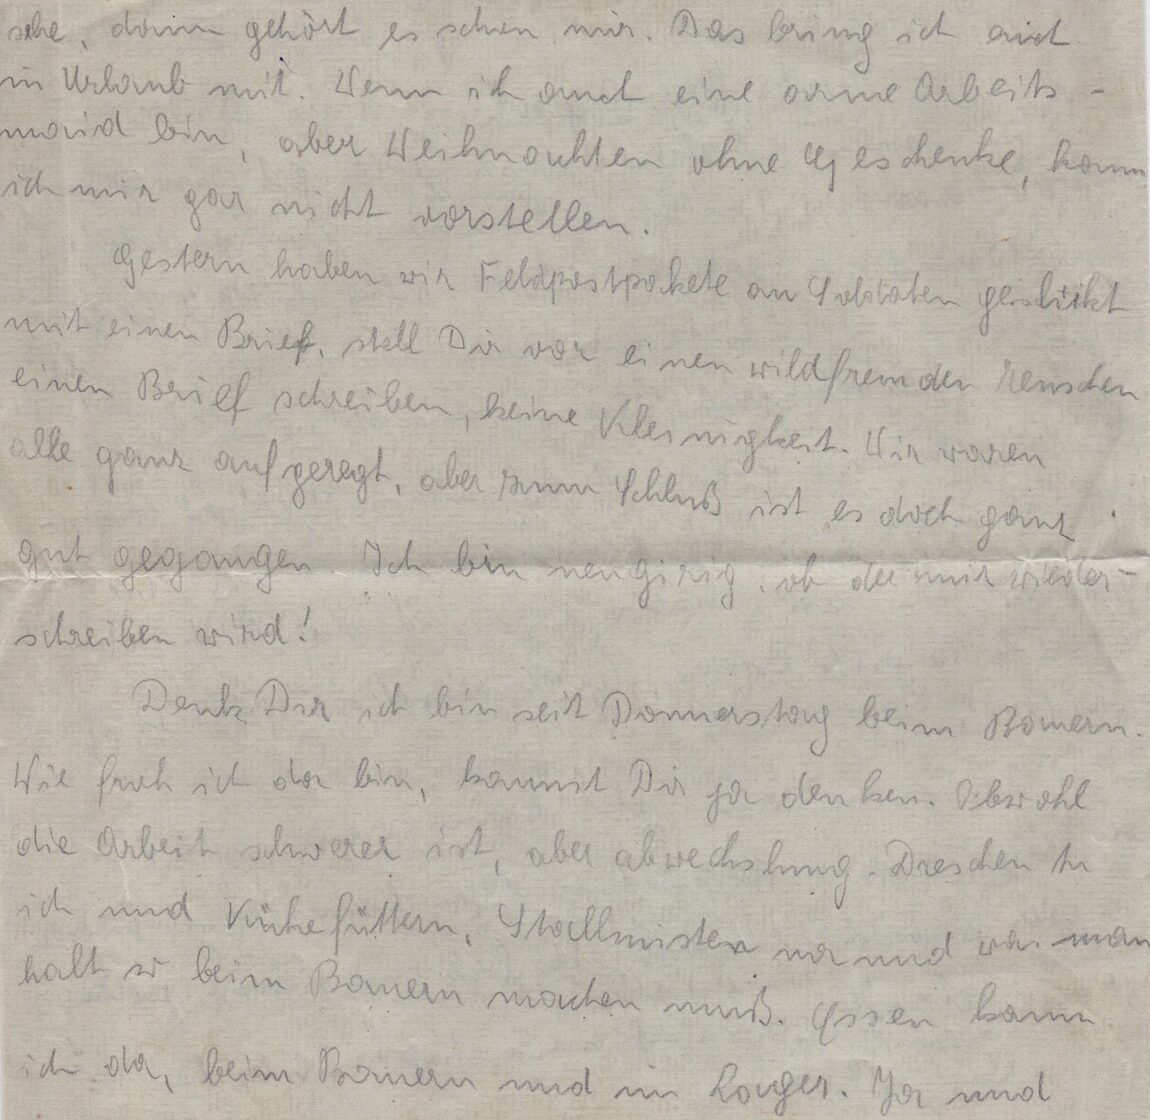 sehe, dann gehört es schon mir. Das bring ich auch
in Urlaub mit. Wenn ich auch eine arme Arbeits-
maid bin, aber Weihnachten ohne Geschenke, kann
ich mir gar nicht vorstellen.
Gestern haben wir Feldpostpakete an Soldaten geschickt
mit einen Brief, stell Dir vor einen wildfremden Menschen
einen Brief schreiben, keine Kleinigkeit. Wir waren
alle ganz aufgeregt, aber zum Schluß ist es doch ganz
gut gegangen. Ich bin neugirig, ob der mir wieder-
schreiben wird!
Denk Dir ich bin seit Donnerstag beim Bauern.
Wie froh ich da bin, kannst Dir ja denken. Obwohl
die Arbeit schwerer ist, aber abwechslung. Dreschen tu
ich und Kühefüttern, Stallmisten na und was man
halt so beim Bauern machen muß. Essen kann
ich da, beim Bauern und im Lager. Ja und